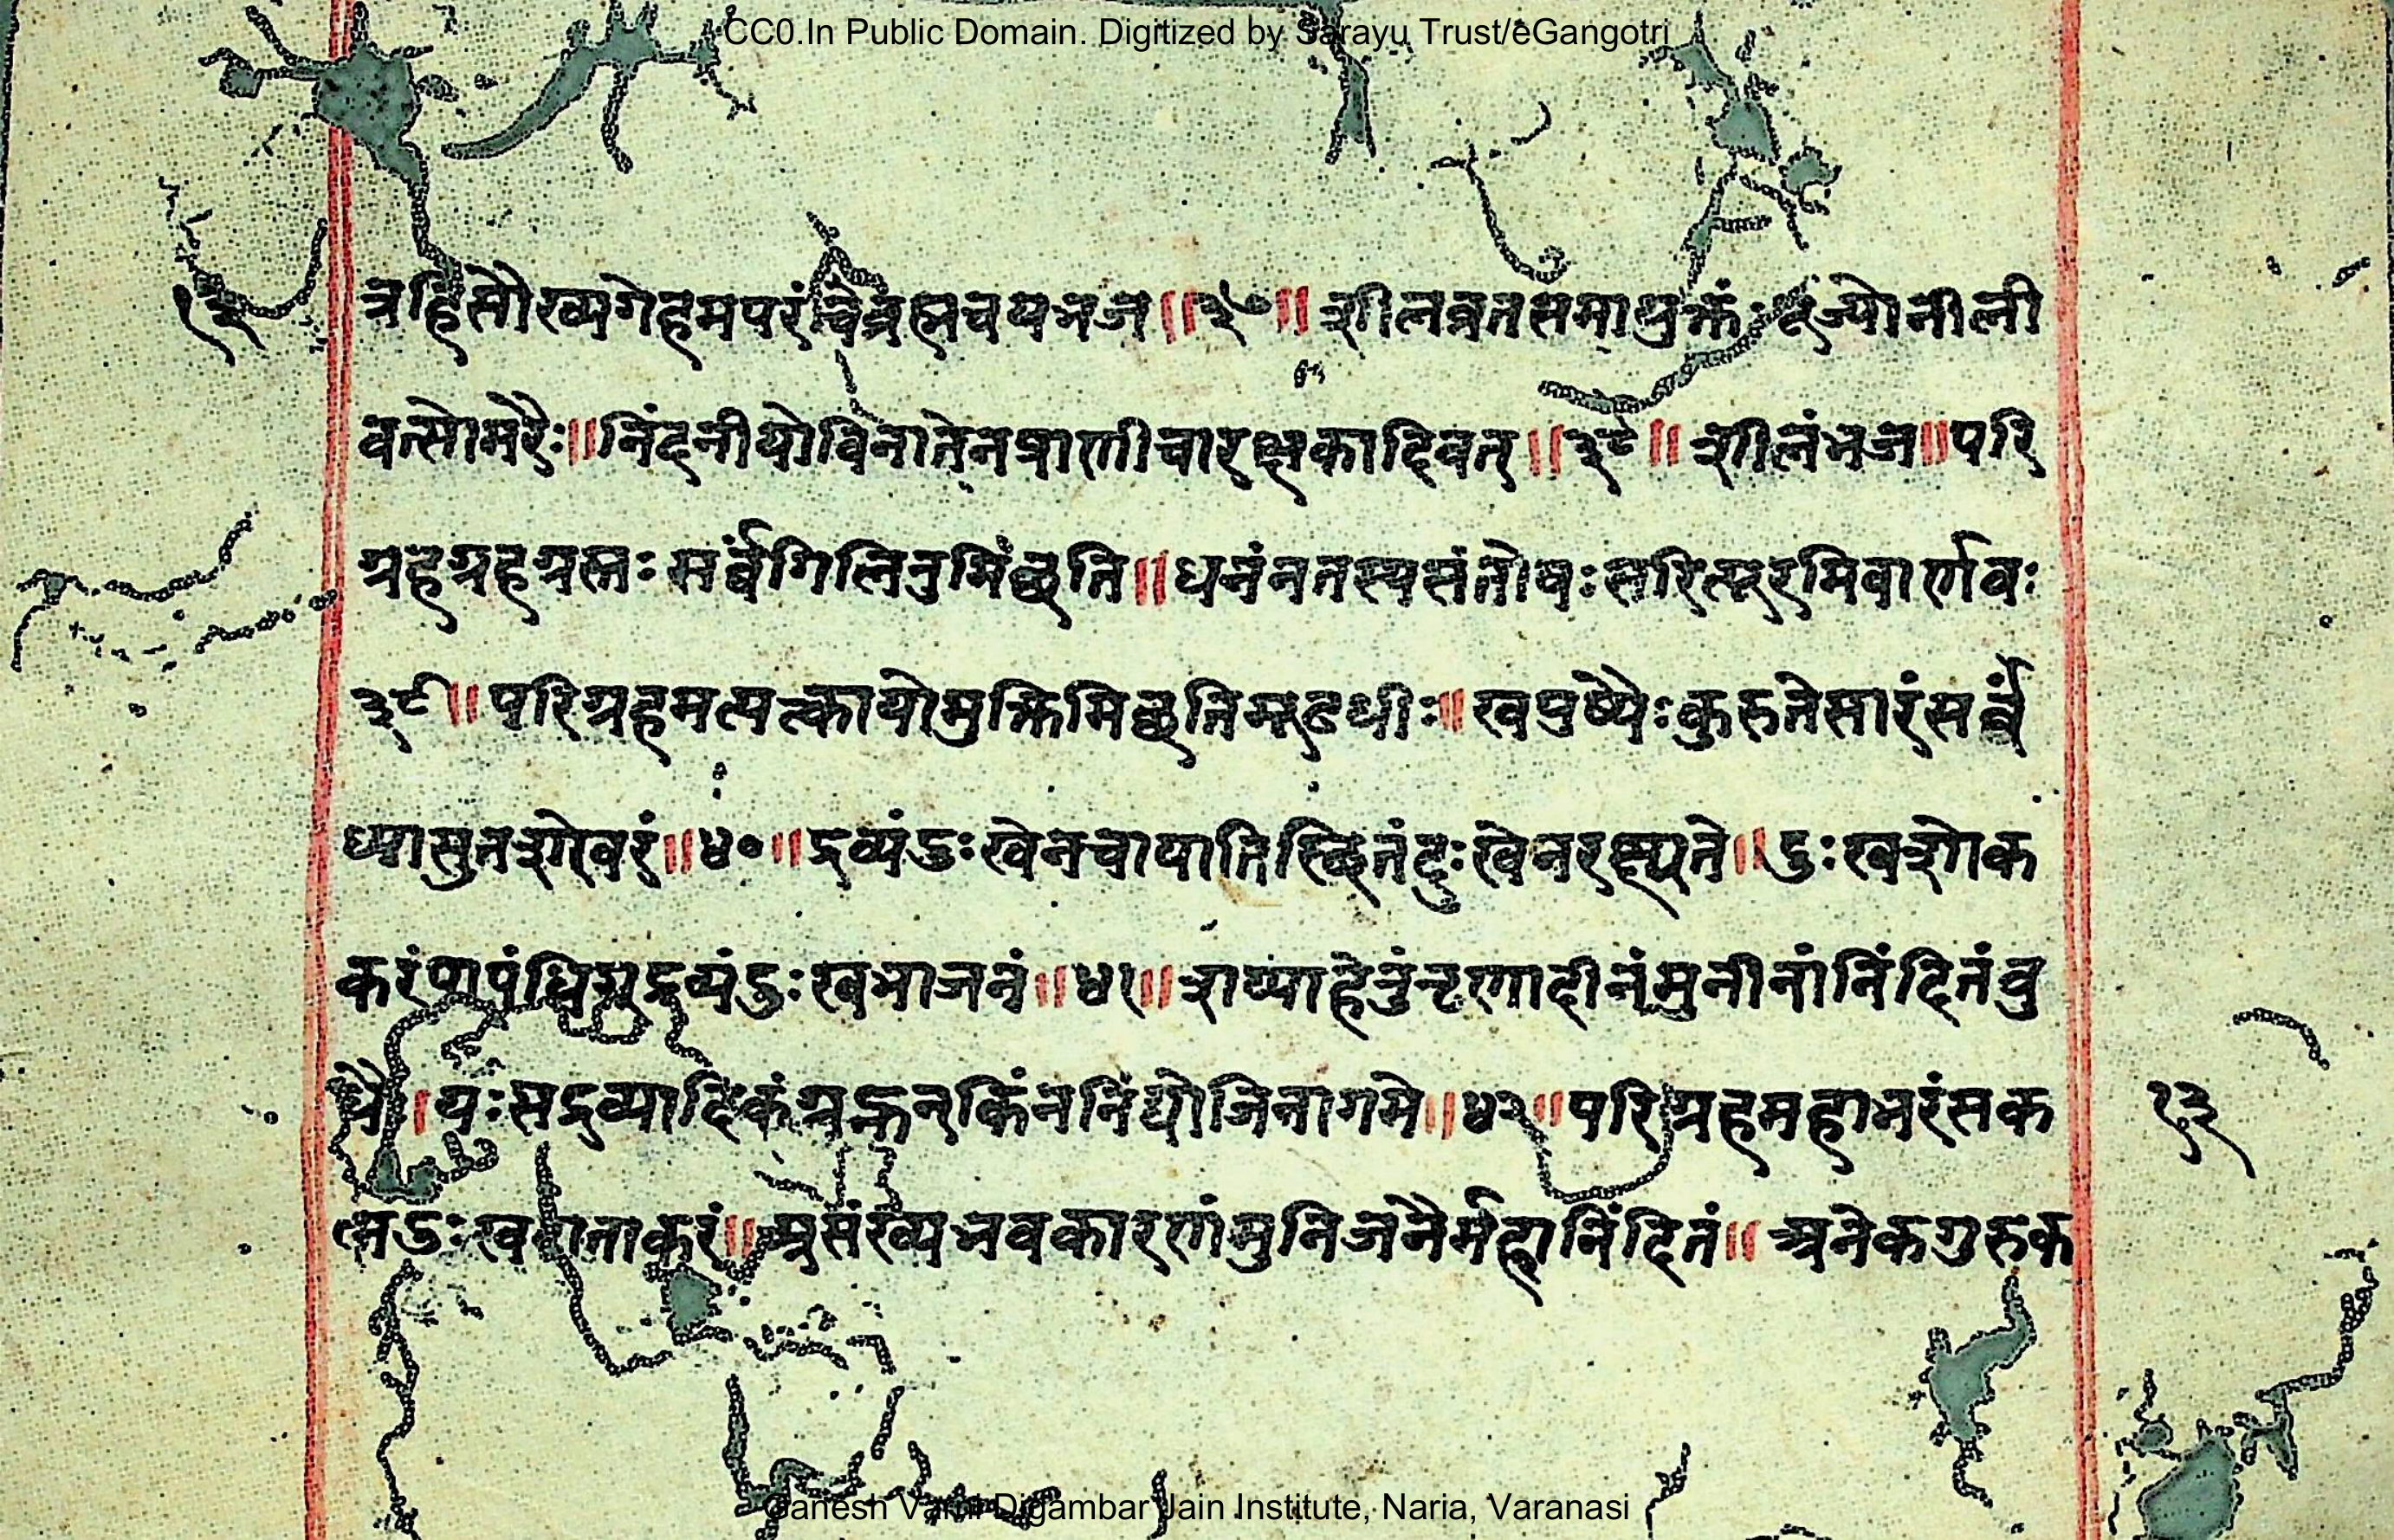 CC0.In Public Domain. Digitized by Sarayu Trust/eGangotri
१२
त्रहि सौख्यगेहमपरं चैवं ब्रह्मचर्यं भज ॥३७॥ शीलव्रतसमायुक्तः पूज्यो नीली
वत्सोमरैः॥ निंदनीयो विना तेन प्राणी चारक्षकादिवत् ॥३८॥ शीलं भज॥ परि
ग्रहग्रहग्रस्तः सर्वं गिलितुमिंछति॥ धनं न तस्य संतोषः सरित्पूरमिवार्णवः
३९॥ परिग्रहमत्यत्का यो मुक्तिमिछति मूढधीः॥ खपुष्पैः कुरुते सारं सर्वं
ध्यासुतशेखरं॥४०॥ द्रव्यं दुःखेन चायाति स्छितं दुःखेन रक्ष्यते॥ दुःखशोक
करं पापं धिग् द्रव्यं दुःखभाजनं॥४१॥ शय्याहेतुं तृणादीनं मुनीनां निंदितं बु
धैः। यः सद्द्रव्यादिकं ग्रह्नन् किं न निंद्यो जिनागमे॥४२॥ परिग्रहमहाभरं सक
१३
लदुःखदानाकरं॥ असंख्यभवकारणं मुनिजनैर्महानिंदितं॥ अनेकगुरुक
Ganesh Varni Digambar Jain Institute, Naria, Varanasi